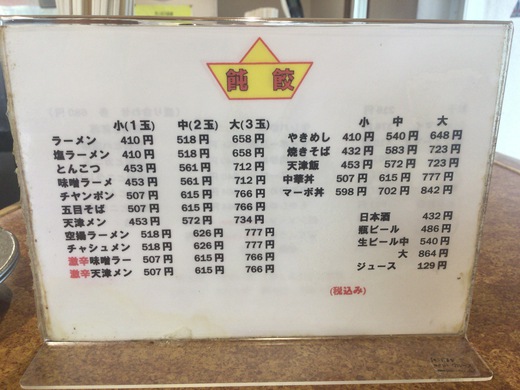 飩餃
小(1玉) 中(2玉) 大(3玉)
ラーメン 410円 518円 658円
塩ラーメン 410円 518円 658円
とんこつ 453円 561円 712円
味噌ラーメ 453円 561円 712円
チヤンポン 507円 615円 766円
五目そば 507円 615円 766円
天津メン 453円 572円 734円
空揚ラーメン 518円 626円 777円
チャシュメン 518円 626円 777円
激辛味噌ラー 507円 615円 766円
激辛天津メン 507円 615円 766円
小 中 大
やきめし 410円 540円 648円
焼きそば 432円 583円 723円
天津飯 453円 572円 723円
中華丼 507円 615円 777円
マーボ丼 598円 702円 842円
日本酒 432円
瓶ビール 486円
生ビール中 540円
大 864円
ジュース 129円
(税込み)